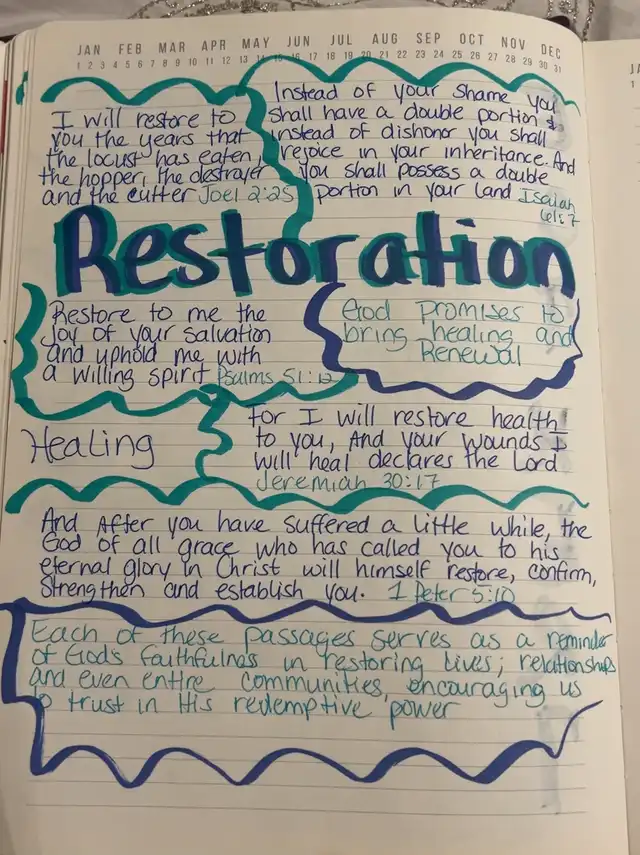 JAN FEB MAR APR MAY JUN JUL AUG SEP OCT NOV DEC
1 2 3 4 5 6 7 8 9 10 11 12 13 14 15 16 17 18 19 20 21 22 23 24 25 26 27 28 29 30 31
I will restore to
you the years that
the locust has eaten,
the hopper, the destroyer
and the cutter Joel 2:25
Instead of your shame you
shall have a double portion &
instead of dishonor you shall
rejoice in your inheritance. And
you shall possess a double
portion in your land Isaiah
61:7
Restoration
Restore to me the
joy of your salvation
and uphold me with
a willing spirit Psalms 51:12
God promises to
bring healing and
Renewal
Healing
For I will restore health
to you, And your wounds I
will heal declares the Lord
Jeremiah 30:17
And After you have suffered a little while, the
God of all grace who has called you to his
eternal glory in Christ will himself restore, confirm,
Strengthen and establish you. 1 Peter 5:10
Each of these passages serves as a reminder
of God's faithfulnas in restoring lives, relationships
and even entire communities, encouraging us
to trust in His redemptive power
JA
1